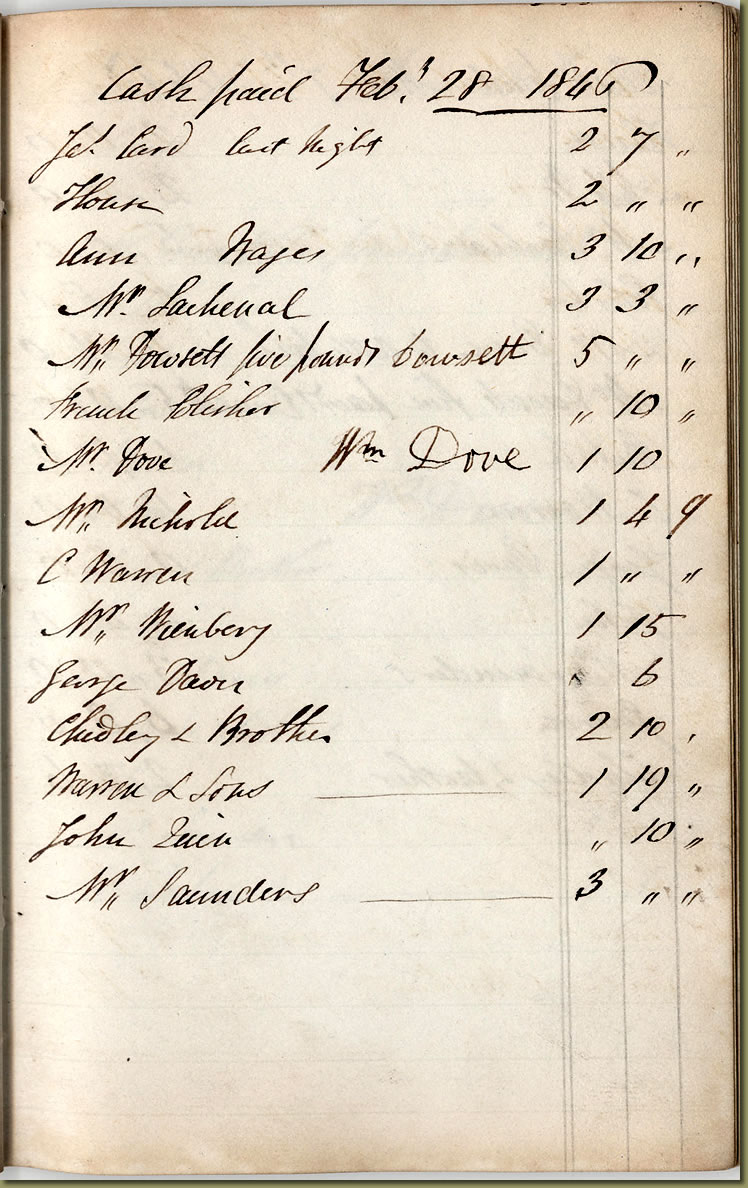 Cash paid Feb.y 28 1846
Jas. Card last Night 2 7 "
House 2 " "
Ann Wages 3 10 "
Mr. Lachenal 3 3 "
Mr. Dowsett five pounds Dowsett 5 " "
Frank Clisher " 10 "
Mr. Dove Wm Dove 1 10
Mr. Nickold 1 4 9
C Warren 1 " "
Mr. Wienberg 1 15
George Daou " 6
Chidley & Brother 2 10 "
Warren & Sons 1 19 "
John " 10 "
Mr. Saunders 3 " "